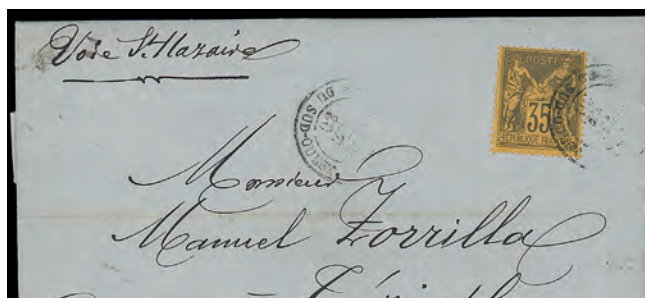 Voie St. Nazaire
POSTE
35
REPUBLIQUE FRANC
DU SUD-O
Monsieur
Manuel Zorrilla